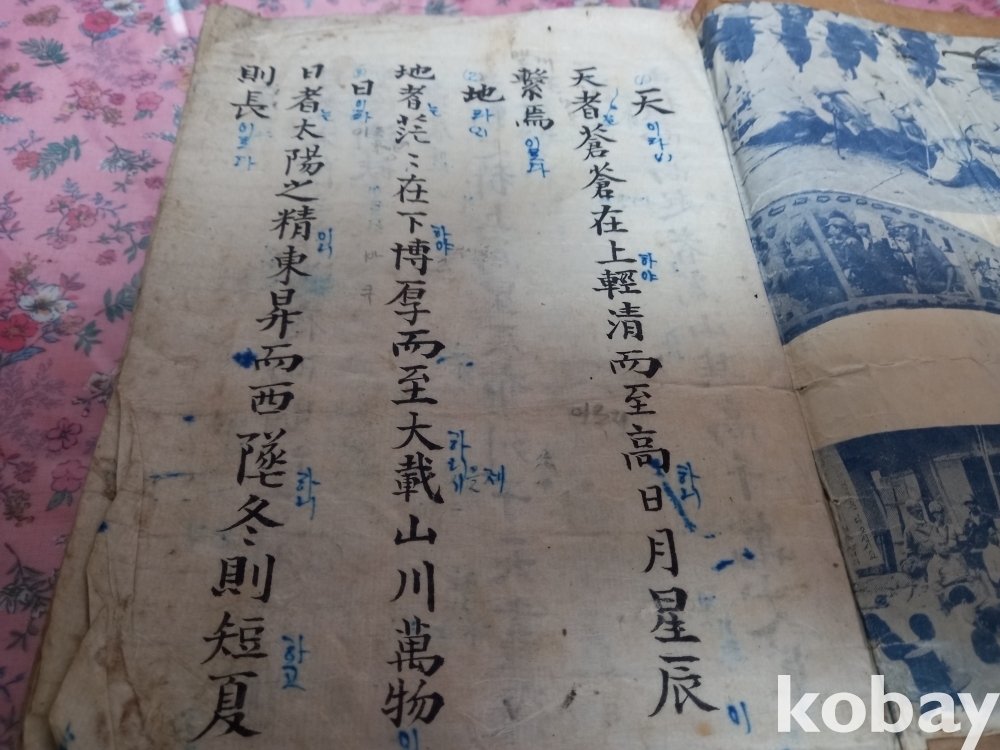 天이라
天者는蒼蒼在上하야輕清而至高하니日月星辰이
繫焉이로다
地라
地者는茫〻在下하야博厚而至大하니載山川萬物이
日이라
日者는太陽之精이니東昇而西墜하니冬則短하고夏
則長이로다
kobay